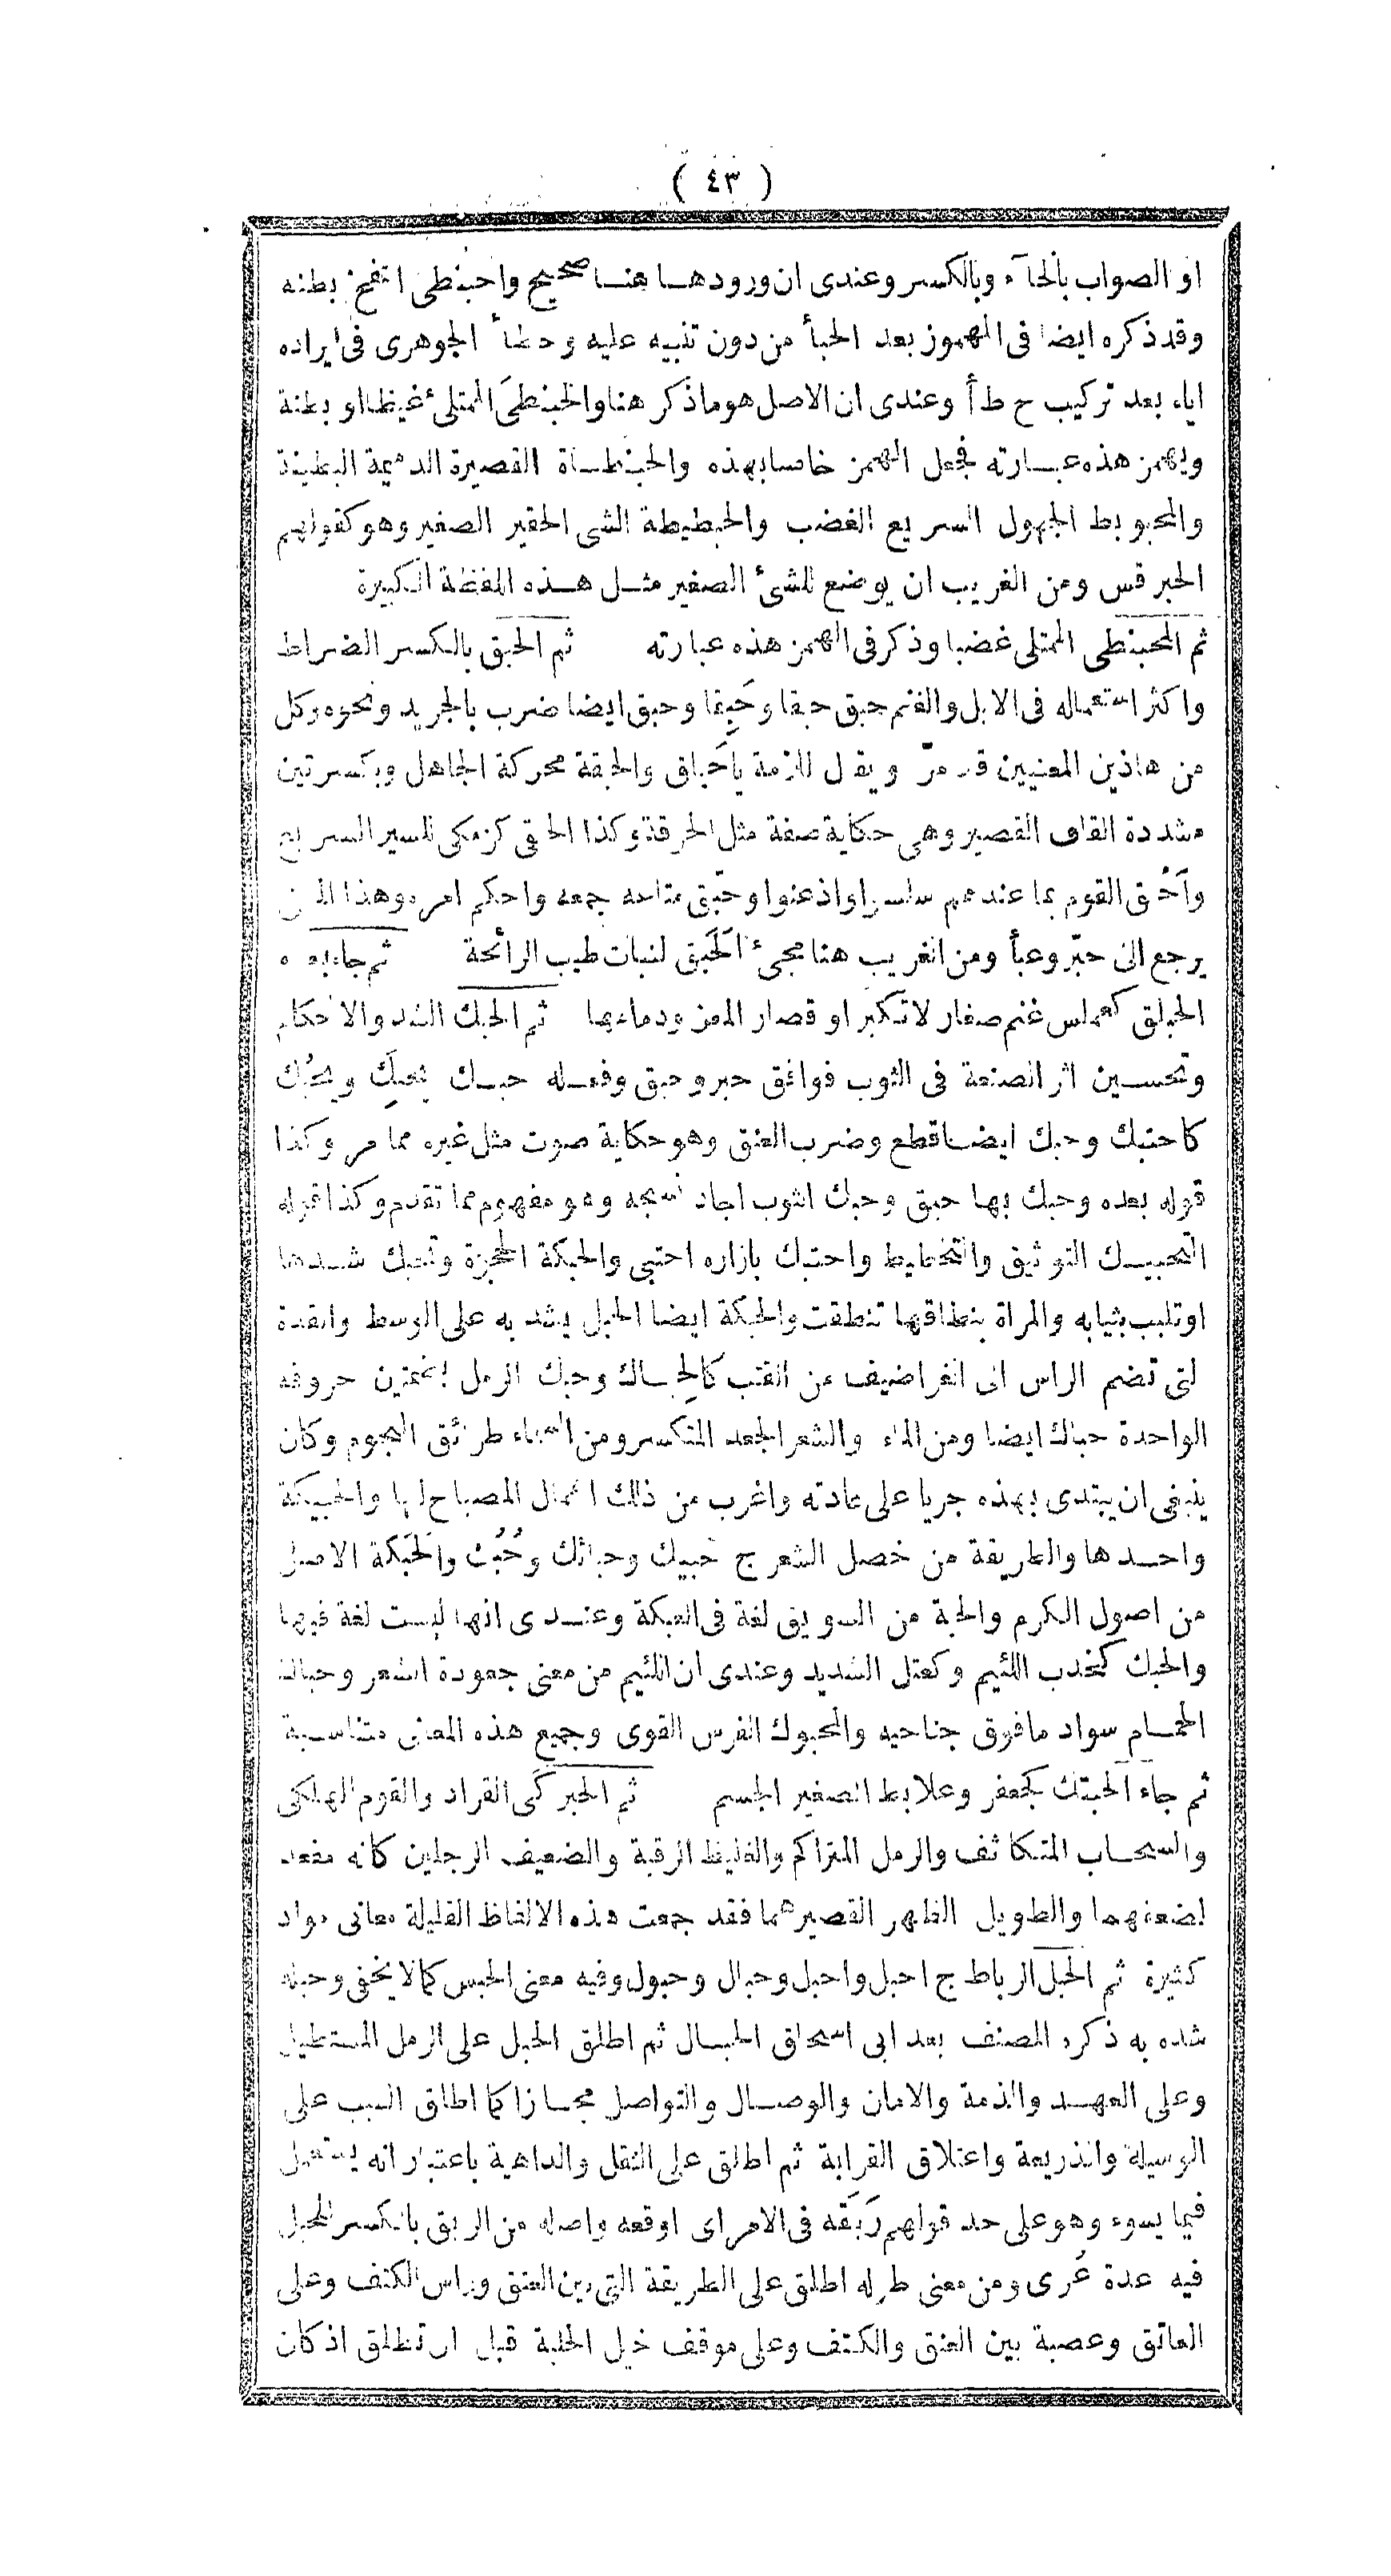 ( ٤٣ )
او الصواب بالحآء وبالكسر وعندى ان ورودها هنا صحيح واحبنطى انتفخ بطنه
وقد ذكره ايضا فى المهموز بعد الحبأ من دون تنبيه عليه وخطأ الجوهرى فى ايراده
اياه بعد تركيب ح ط أ وعندى ان الاصل هو ما ذكر هنا والحبنطَى الممتلئ غيظا او بطنة
ويهمز هذه عبارته فجعل الهمز خاصا بهذه والحبنطاة القصيرة الدميمة البطينة
والمحبوبط الجهول السريع الغضب والحبطيطة الشى الحقير الصغير وهو كقولهم
الحبرقس ومن الغريب ان يوضع للشئ الصغير مثل هذه اللفظة الكبيرة
ثم المحبنطى الممتلى غضبا وذكر فى الهمز هذه عبارته ثم الحبق بالكسر الضراط
واكثر استعماله فى الابل والغنم حبق حبقا وحَبِقا وحبق ايضا ضرب بالجريد ونحوه وكل
من هاذين المعنيين قد مرّ ويقال للازمة ياحَباق والحبقة محركة الجاهل وبكسرتين
مشددة القاف القصير وهى حكاية صفة مثل الحزقة وكذا الحبقى كزمكى للسير السريع
واَحْبق القوم بما عندهم سلسوا واذعنوا وحبّق متاعه جمعه واحكم امره وهذا
يرجع الى حبّر وعبأ ومن الغريب هنا مجىء الَحَبق لنبات طيب الرائحة ثم جاء بعده
الحبلق كعملس غنم صغار لا تكبر او قصار المعز ودمامها ثم الحبك الشد والاحكام
وتحسين اثر الصنعة فى الثوب فوافق حبر وحبق وفعله حبك يحبِك ويحبُك
كاحتبك وحبك ايضا قطع وضرب العنق وهو حكاية صوت مثل غيره مما مر وكذا
قوله بعده وحبك بها حبق وحبك الثوب اجاد نسجه وهو مفهوم مما تقدم وكذا قوله
التحبيك التوثيق والتخطيط واحتبك بازاره احتبى والحبكة الحجزة وتحبك شدها
او تلبب بثيابه والمراة بنطاقها تنطقت والحبكة ايضا الحبل يشد به على الوسط والقدة
لتى تضم الراس الى الغراضيف من القتب كالحِباك وحبك الرمل بضمتين حروفه
الواحدة حباك ايضا ومن الماء والشعر الجعد المتكسر ومن السماء طرائق النجوم وكان
ينبغى ان يبتدى بهذه جريا على عادته واغرب من ذلك اهمال المصباح لها والحبيكة
واحدها والطريقة من خصل الشعر ج حبيك وحبائك وحُبُك والَحَبَكة الاصل
من اصول الكرم والحبة من السويق لغة فى العبكة وعندى انها ليست لغة فيها
والحبك كخدب اللئيم وكعتل الشديد وعندى ان اللئيم من معنى جعودة الشعر وحباك
الحمام سواد ما فوق جناحيه والمحبوك الفرس القوى وجميع هذه المعانى متناسبة
ثم جاء الحبتك كجعفر وعلابط الصغير الجسم ثم الحبركى القراد والقوم الهلكى
والسحاب المتكاثف والرمل المتراكم والغليظ الرقبة والضعيف الرجلين كانه مقعد
لضعفهما والطويل الظهر القصيرهما فقد جمعت هذه الالفاظ القليلة معانى مواد
كثيرة ثم الحبل الرباط ج احبل واحبل وحبال وحبول وفيه معنى الحبس كما لا يخفى وحبله
شده به ذكره المصنف بعد ابى اسحاق الحبال ثم اطلق الحبل على الرمل المستطيل
وعلى العهد والذمة والامان والوصال والتواصل مجازا كما اطلق السبب على
الوسيلة والذريعة واعتلاق القرابة ثم اطلق على الثقل والداهية باعتبار انه يستعمل
فيما يسوء وهو على حد قولهم رَبَقه فى الامر اى اوقعه واصله من الربق بالكسر للحبل
فيه عدة عُرى ومن معنى طوله اطلق على الطريقة التى بين العنق وراس الكتف وعلى
العاتق وعصبة بين العنق والكتف وعلى موقف خيل الحلبة قبل ان تطلق اذ كان